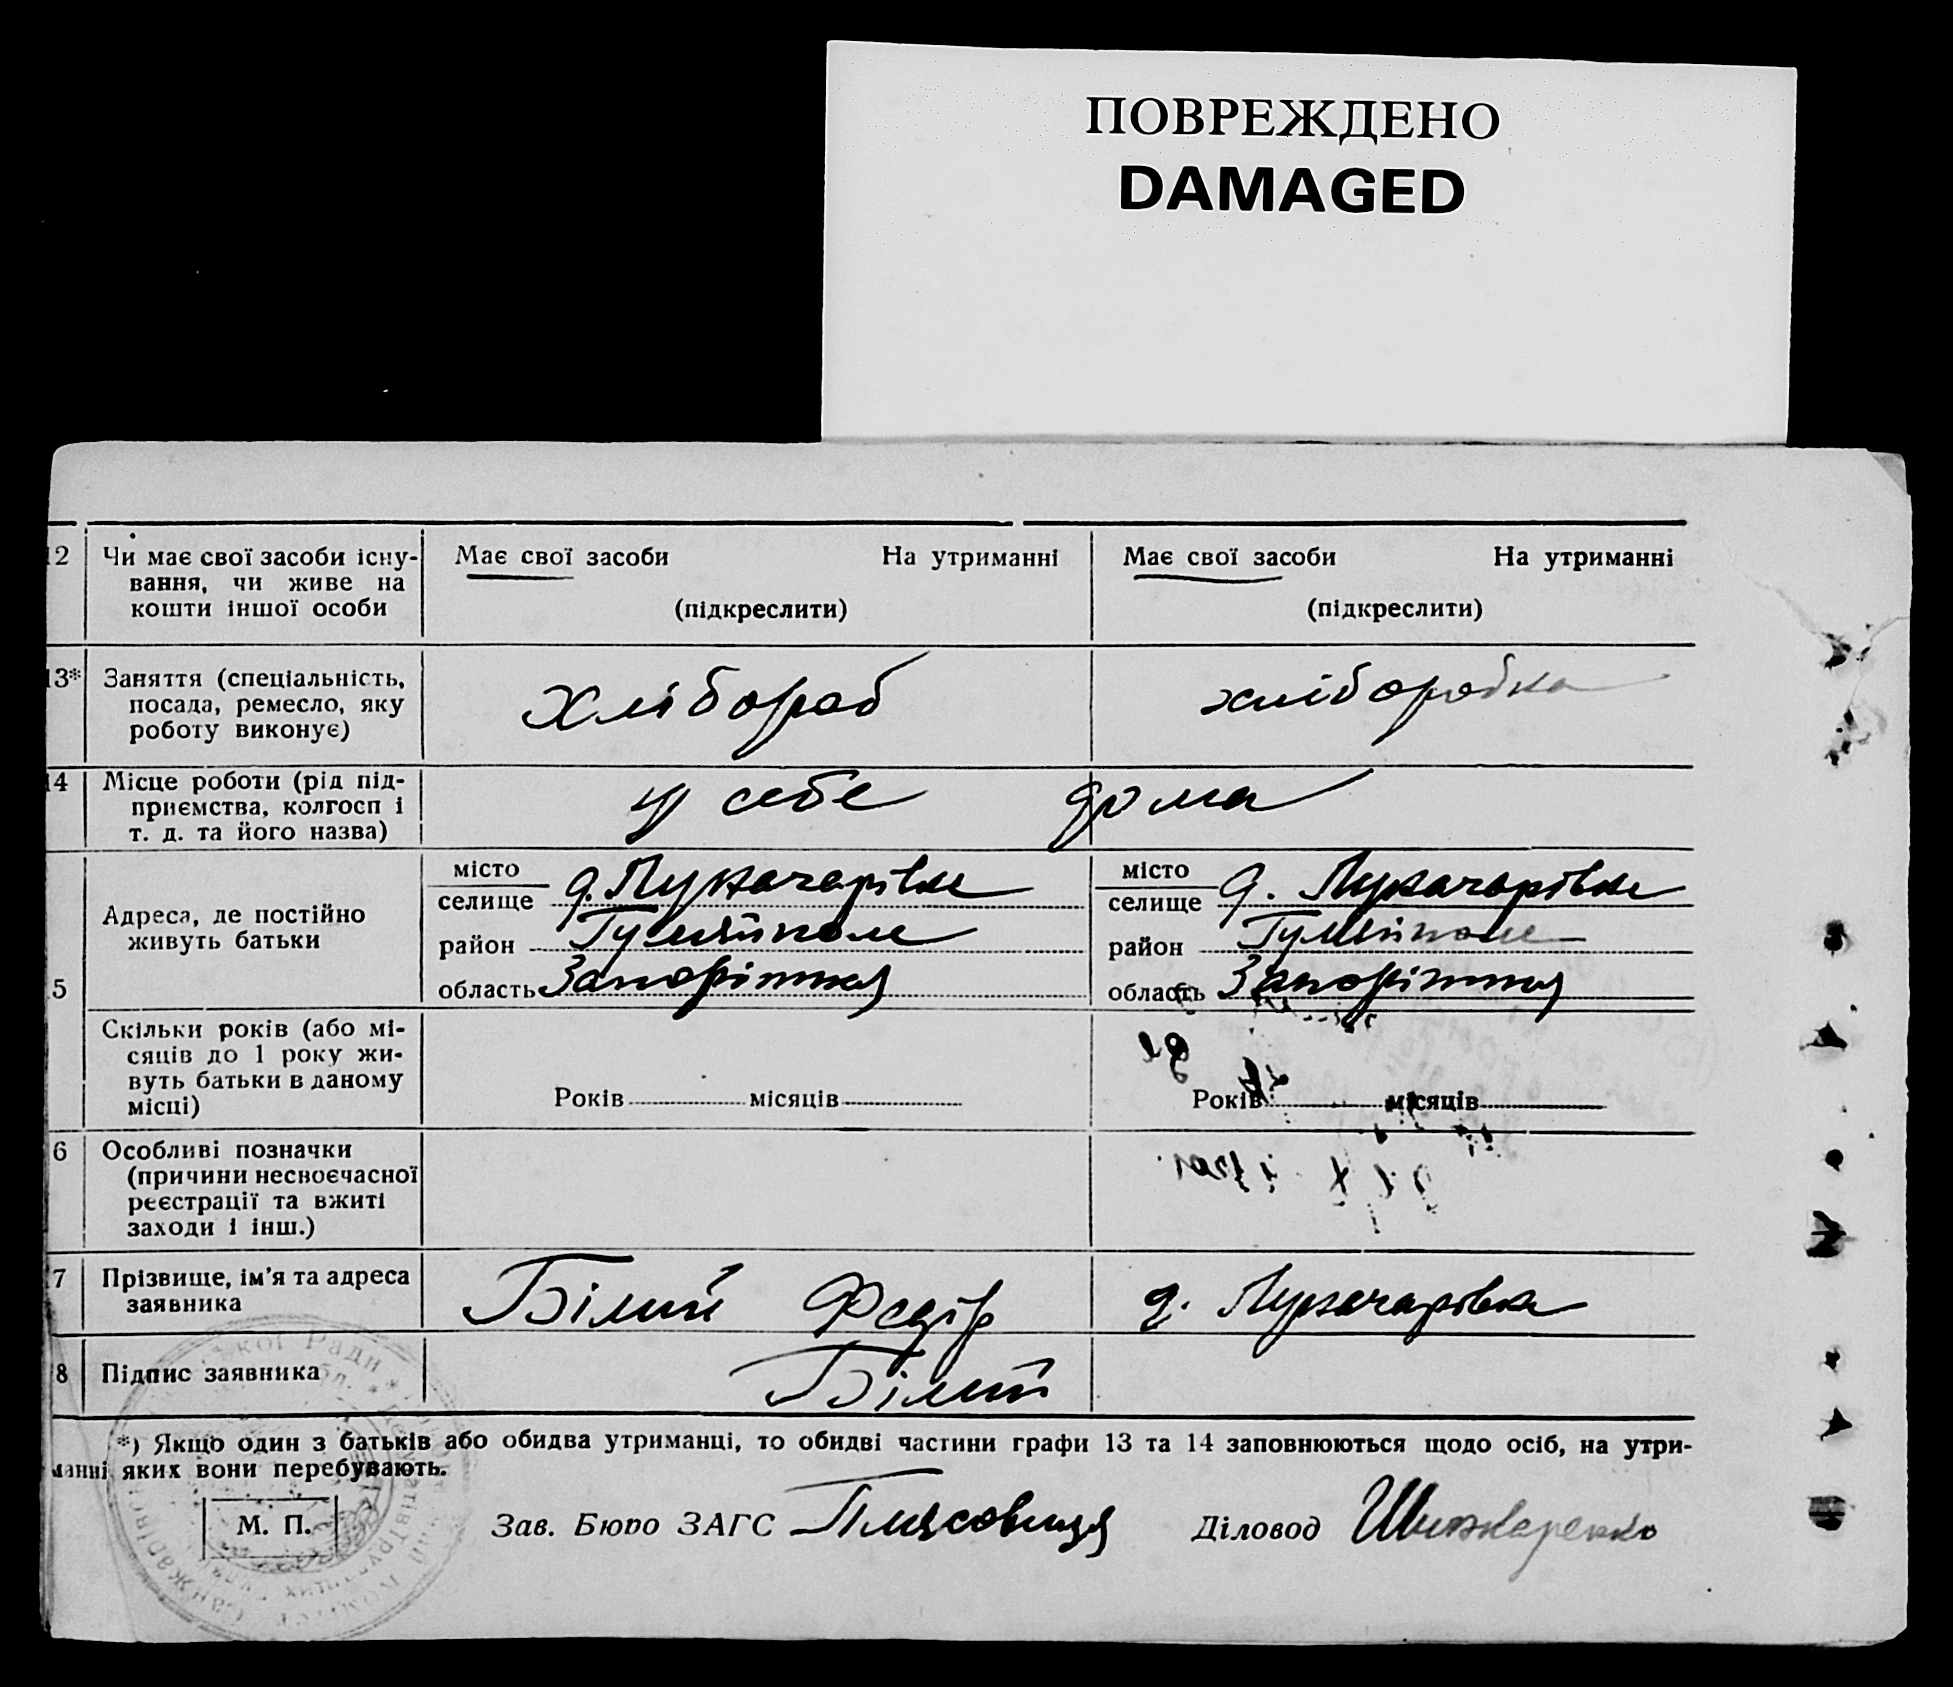 ПОВРЕЖДЕНО
DAMAGED
12 Чи має свої засоби існу- Має свої засоби На утриманні Має свої засоби На утриманні
вання, чи живе на
кошти іншої особи (підкреслити) (підкреслити)
13* Заняття (спеціальність, хлібороб хліборобка
посада, ремесло, яку
роботу виконує)
14 Місце роботи (рід під- у себе дома
приємства, колгосп і
т. д. та його назва)
місто місто
селище д. Луначарівка селище д. Луначарівка
Адреса, де постійно
живуть батьки район Гуляйполе район Гуляйполе
5 область Запоріжжя область Запоріжжя
Скільки років (або мі-
сяців до 1 року жи-
вуть батьки в даному Років місяців Років місяців
місці)
6 Особливі позначки
(причини несвоєчасної
реєстрації та вжиті
заходи і інш.)
7 Прізвище, ім'я та адреса Білий Федір д. Луначарівка
заявника
8 Підпис заявника Білий
*) Якщо один з батьків або обидва утриманці, то обидві частини графи 13 та 14 заповнюються щодо осіб, на утри-
манні яких вони перебувають.
М. П. Зав. Бюро ЗАГС Діловод Шинкаренко